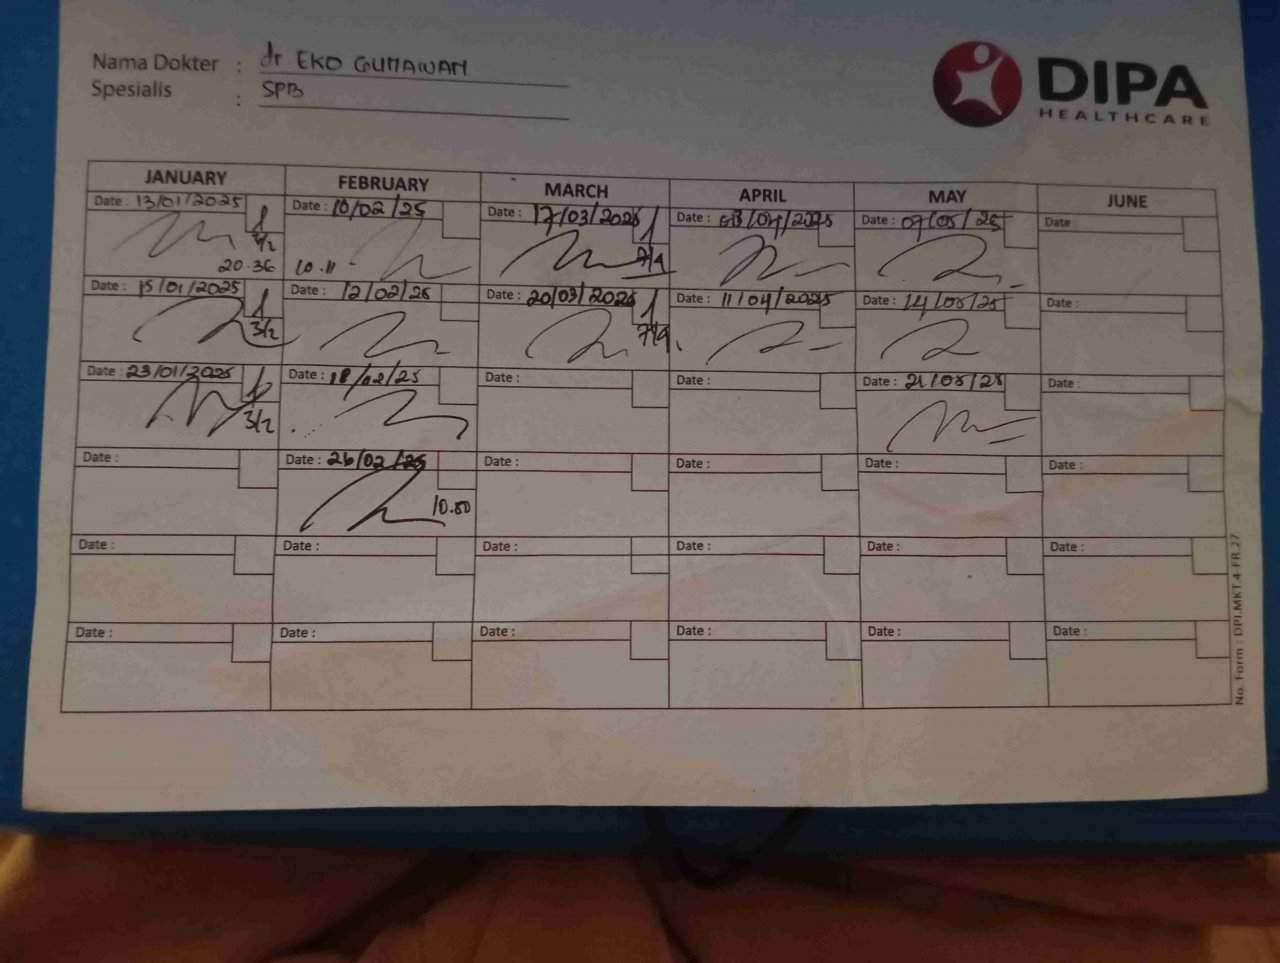 Nama Dokter : dr EKO GUNAWAN
Spesialis : SPB
DIPA
HEALTHCARE
JANUARY FEBRUARY MARCH APRIL MAY JUNE
Date : 13/01/2025 Date : 10/02/25 Date : 17/03/2025 Date : 08/04/2025 Date : 07/05/25 Date
3/2 7/4
20.36 10.11
Date : 15/01/2025 Date : 12/02/25 Date : 20/03/2025 Date : 11/04/2025 Date : 14/05/25 Date :
3/2 7/4
Date : 23/01/2025 Date : 18/02/25 Date : Date : Date : 21/05/25 Date :
3/2
Date : Date : 26/02/25 Date : Date : Date : Date :
10.50
Date : Date : Date : Date : Date : Date :
Date : Date : Date : Date : Date : Date :
No. Form : DPI.MKT.4-FR.27